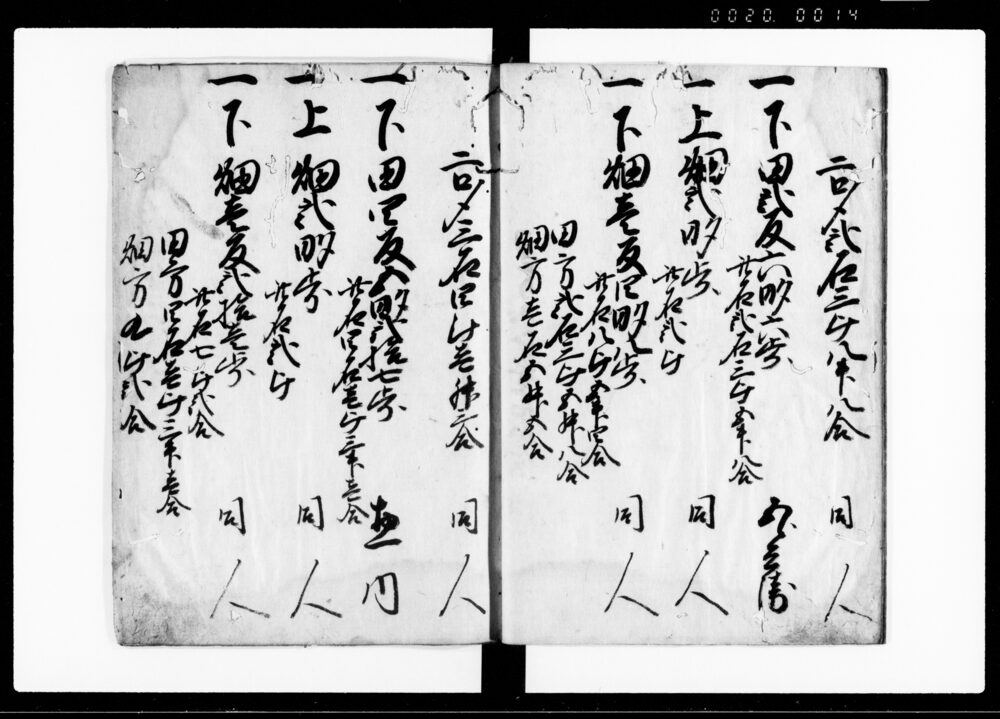 0020. 0014
二口〆弐石三斗八升八合 同人
一下田弐反六畝六歩
此石弐石三斗五升八合
一上畑弐畝歩 同人
此石弐斗
一下畑壱反四畝歩 同人
此石八斗五升四合
田方弐石三斗五升八合
畑方壱石五升五合
二口〆三石四斗壱升二合 同人
一下田四反五畝弐拾七歩
此石四石壱斗三升壱合
一上畑弐畝歩 同人
此石弐斗
一下畑壱反弐拾壱歩 同人
此石七斗弐合
田方四石壱斗三升壱合
畑方九斗弐合